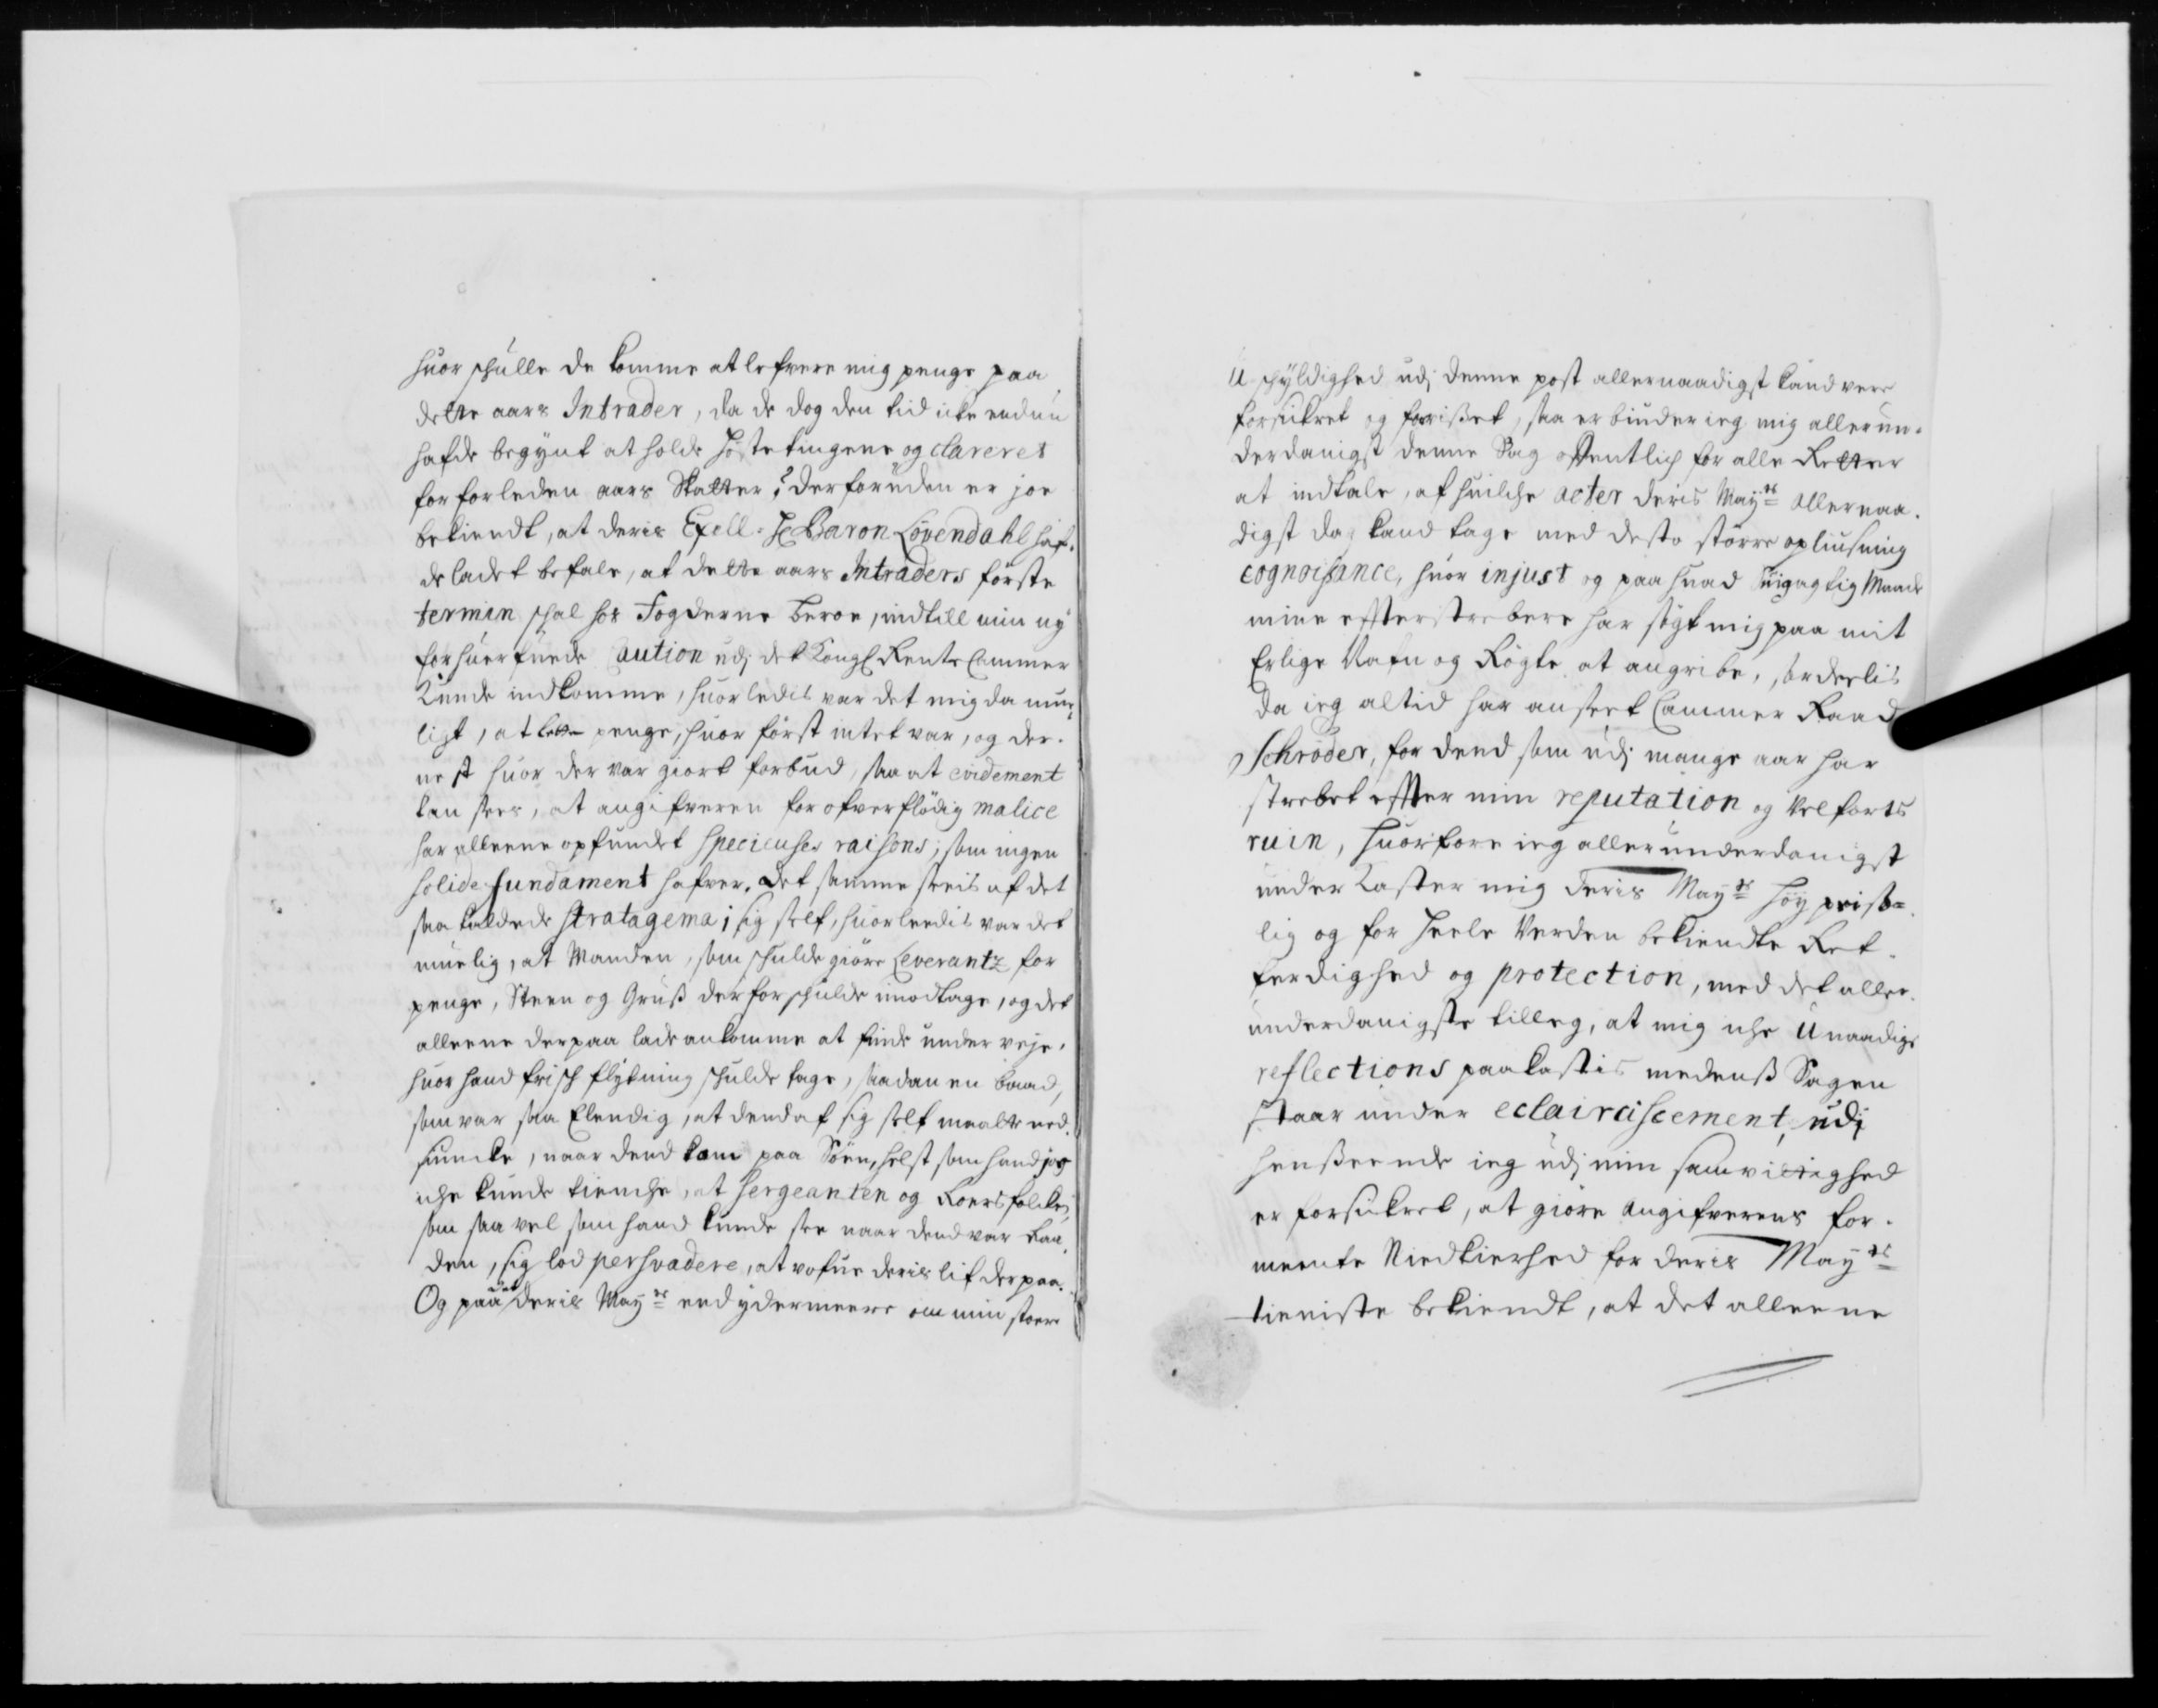 huor skulle de komme at lefvere mig penge paa
dette aars Intrader, da de dog den tid icke endnu
hafde begÿnt at holde höste tingene og clareret
for forleden aars Skatter? derforuden er joe
bekiendt, at deris Exell. Hr Baron Lövendahl haf-
de ladet befale, at dette aars Intraders förste
termin skal hos Fogderne beroe, indtill min nÿ
forhuerfuede Caution udj det Kongl Rente Cammer
Kunde indkomme, huorledis var det mig da mue-
ligt, at penge, huor först intet var, og der-
nest huor der var giort forbud, saa at evidement
kan sees, at angifveren for ofverflödig malice
har alleene opfundet specieuses raisons, som ingen
solide fundament hafver. Det samme sees af det
saa kaldede stratagema i sig self, huorleedis var det
muelig, at Manden, som skulde giöre Leverantz for
penge, Steen og Gruß derfor skulde imodtage, og det
alleene derpaa lade ankomme at finde under veje,
huor hand frisch flÿtning skulde tage, saadan en baad,
som var saa Elendig, at dend af sig self maatte ned-
siuncke, naar dend kom paa Söen, helst som hand joe
icke kunde tiencke, at Sergeanten og Roersfolcket,
som saa vel som hand kunde see naar dend var Raa-
den, sig lod persvadere, at vofue deris lif derpaa.
Og paa det deris Maÿts end ydermeere om min store
U-skÿldighed udj denne post allernaadigst kand vere
forsikret og forvißet, saa erbinder ieg mig allerun-
derdanigst denne Sag offentlich for alle Retter
at indtale, af huilche acter deris Maÿts allernaa-
digst da kand tage med desto större opliusning
cognoisance, huor injust og paa huad Maade
mine effterstrebere har sögt mig paa mit
Erlige Nafn og Rögte at angribe, serdeelis
da ieg altid har anseet Cammer Raad
Schröder, for dend som udj mange aar har
strebet effter min reputation og Velfærts
ruin, huorfore ieg allerunderdanigst
under Kaster mig deris Maÿts höÿ priß-
lig og for heele Verden bekiendte Ret-
ferdighed og protection, med det aller-
underdanigste tilleg, at mig iche Unaadige
reflections paakastis medenß Sagen
staar under eclaircissement, udj
henseende ieg udj min samvittighed
er forsikret, at giöre Angifverens for-
meente Niedkierhed for deris Maÿts
tieniste bekiendt, at det alleene